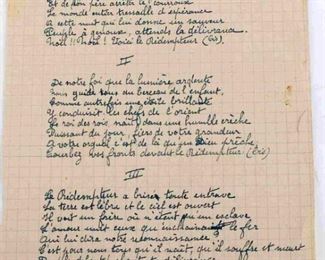 Et de son père arrêter le courroux
Le monde entier tressaille d'espérance
A cette nuit qui lui donne un sauveur
Peuple à genoux, attends ta délivrance
Noël !! Noël ! Voici le Rédempteur (bis)
II
De notre foi que la lumière ardente
Nous guide tous au berceau de l'enfant
Comme autrefois une étoile brillante
Y conduisit les chefs de l'orient
Le roi des rois naît dans une humble crèche
Puissant du jour, fiers de votre grandeur
A votre orgueil c'est de là qu'un Dieu prêche
Courbez vos fronts devant le Rédempteur (bis)
III
Le Rédempteur a brisé toute entrave
La terre est libre et le ciel est ouvert
Il voit un frère où n'était qu'un esclave
L'amour unit ceux qui enchainait le fer
Qui lui dira notre reconnaissance
C'est pour nous tous qu'il naît, qu'il souffre et meurt